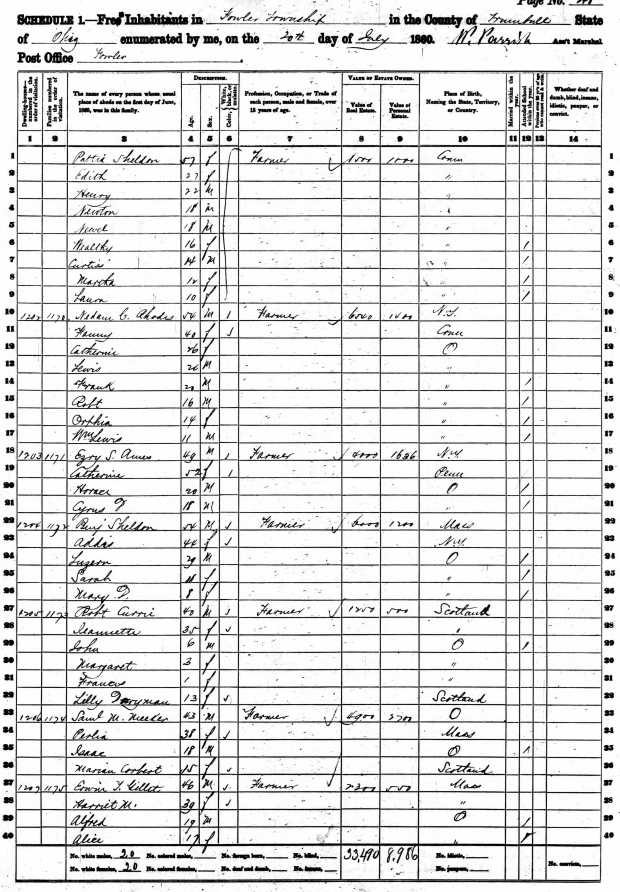 Page No.
SCHEDULE 1.—Free Inhabitants in Fowler Township in the County of Trumbull State
of Ohio enumerated by me, on the 20th day of July 1860. W. Parrish Ass't Marshal.
Post Office Fowler
Dwelling-houses—numbered in the order of visitation.
Families numbered in the order of visitation.
The name of every person whose usual place of abode on the first day of June, 1860, was in this family.
DESCRIPTION.
Age.
Sex.
Color, White, black, or mulatto.
Profession, Occupation, or Trade of each person, male and female, over 15 years of age.
VALUE OF ESTATE OWNED.
Value of Real Estate.
Value of Personal Estate.
Place of Birth, Naming the State, Territory, or Country.
Married within the year.
Attended School within the year.
Persons over 20 y'rs of age who cannot read & write.
Whether deaf and dumb, blind, insane, idiotic, pauper, or convict.
1 2 3 4 5 6 7 8 9 10 11 12 13 14
1 Sheldon 57 f Farmer 1000 Conn 1
2 Edith 27 f " 2
3 Henry 22 m " 3
4 Newton 18 m " 4
5 Newel 18 m " 5
6 Wealthy 16 f " / 6
7 Curtis 14 m " / 7
8 Martha 12 f " / 8
9 Laura 10 f " / 9
10 1202 1170 C. Rhodes 54 m Farmer 1400 N.Y. 10
11 Fanny 40 f Conn 11
12 Catherine 26 f O 12
13 Lewis 20 m " 13
14 Frank 20 m " / 14
15 Robt 16 m " / 15
16 Orphia 14 f " / 16
17 Wm Lewis 11 m " / 17
18 1203 1171 Ezry S. Ames 49 m Farmer 4000 1636 N.Y. 18
19 Catherine 52 f Penn 19
20 Horace 20 m O / 20
21 Cyrus 18 m " / 21
22 1204 1172 Benj Sheldon 54 m Farmer 6000 1200 Mass 22
23 44 f N.Y. 23
24 Luzern m O / 24
25 Sarah 11 f " / 25
26 Mary 8 f " / 26
27 1205 1173 Robt Currie 40 m Farmer 1250 500 Scotland 27
28 Jeannette 35 f " 28
29 John 6 m O / 29
30 Margaret 3 f " 30
31 Francis 1 f " 31
32 Lilly 13 f Scotland 32
33 1206 1174 Saml M. Meeker 43 m Farmer 4900 2700 O 33
34 38 f Mass 34
35 Isaac 18 m O / 35
36 Marian Corbert 15 f Scotland 36
37 1207 1175 Erwin T. Gillet 46 m Farmer 550 Mass 37
38 Harriet M. 39 f " 38
39 Alfred 19 m O / 39
40 Alice 17 f " / 40
No. white males, 20 No. colored males, No. foreign born, No. blind, 33,490 8,986 No. idiotic, No. convicts,
No. white females, 20 No. colored females, No. deaf and dumb, No. insane, No. paupers,